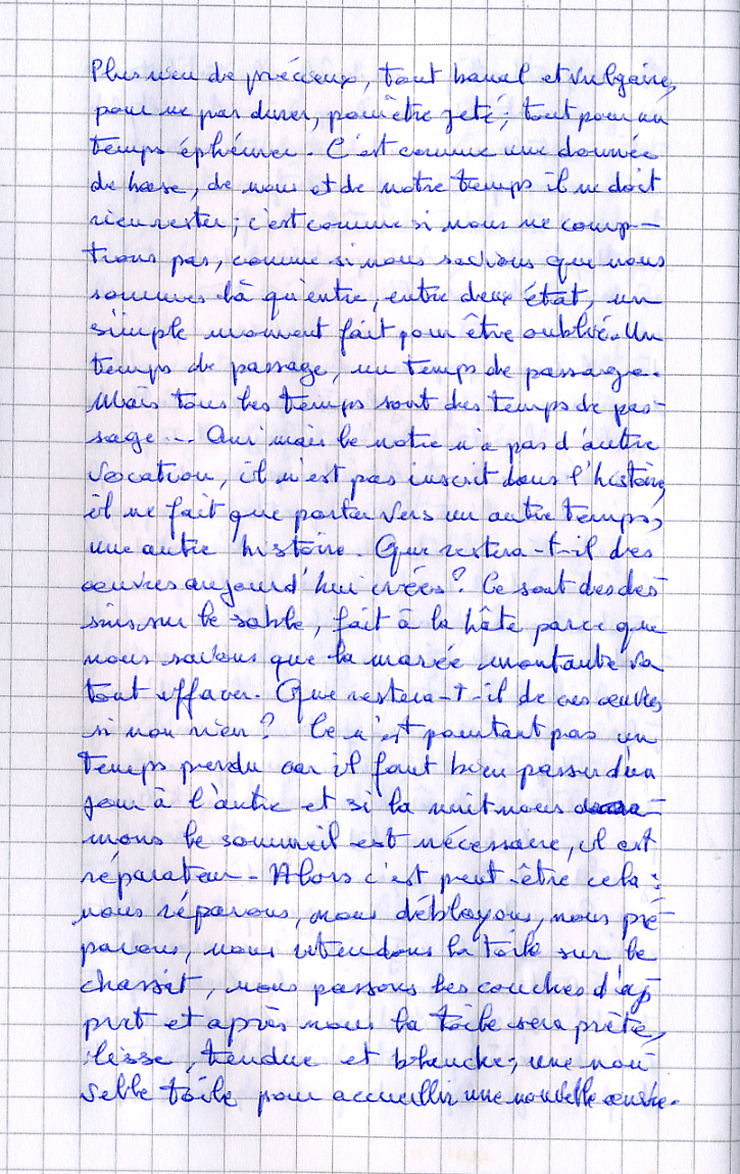 Plus rien de précieux, tout banal et vulgaire,
pour ne pas durer, pour être jeté ; tout pour un
temps éphémer. C'est comme une donnée
de base, de nous et de notre temps il ne doit
rien rester ; c'est comme si nous ne comp-
tions pas, comme si nous savions que nous
sommes là qu'entre, entre deux état, un
simple moment fait pour être oublié. Un
temps de passage, un temps de passage.
Mais tous les temps sont des temps de pas-
sage... Oui mais le notre n'a pas d'autre
vocation, il n'est pas inscrit dans l'histoire,
il ne fait que porter vers un autre temps,
une autre histoire. Que restera-t-il des
œuvres aujourd'hui créées ? Ce sont des des-
sins sur le sable, fait à la hâte parce que
nous savons que la marée montante va
tout effacer. Que restera-t-il de ces œuvres
si non rien ? Ce n'est pourtant pas un
temps perdu car il faut bien passer d'un
jour à l'autre et si la nuit nous
mons le sommeil est nécessaire, il est
réparateur - Alors c'est peut-être cela :
nous réparons, nous déblayons, nous pré-
parons, nous retendons la toile sur le
chassit, nous passons les couches d'ap-
pret et après nous la toile sera prète,
lisse, tendue et blanche ; une nou-
velle toile pour accueillir une nouvelle œuvre.